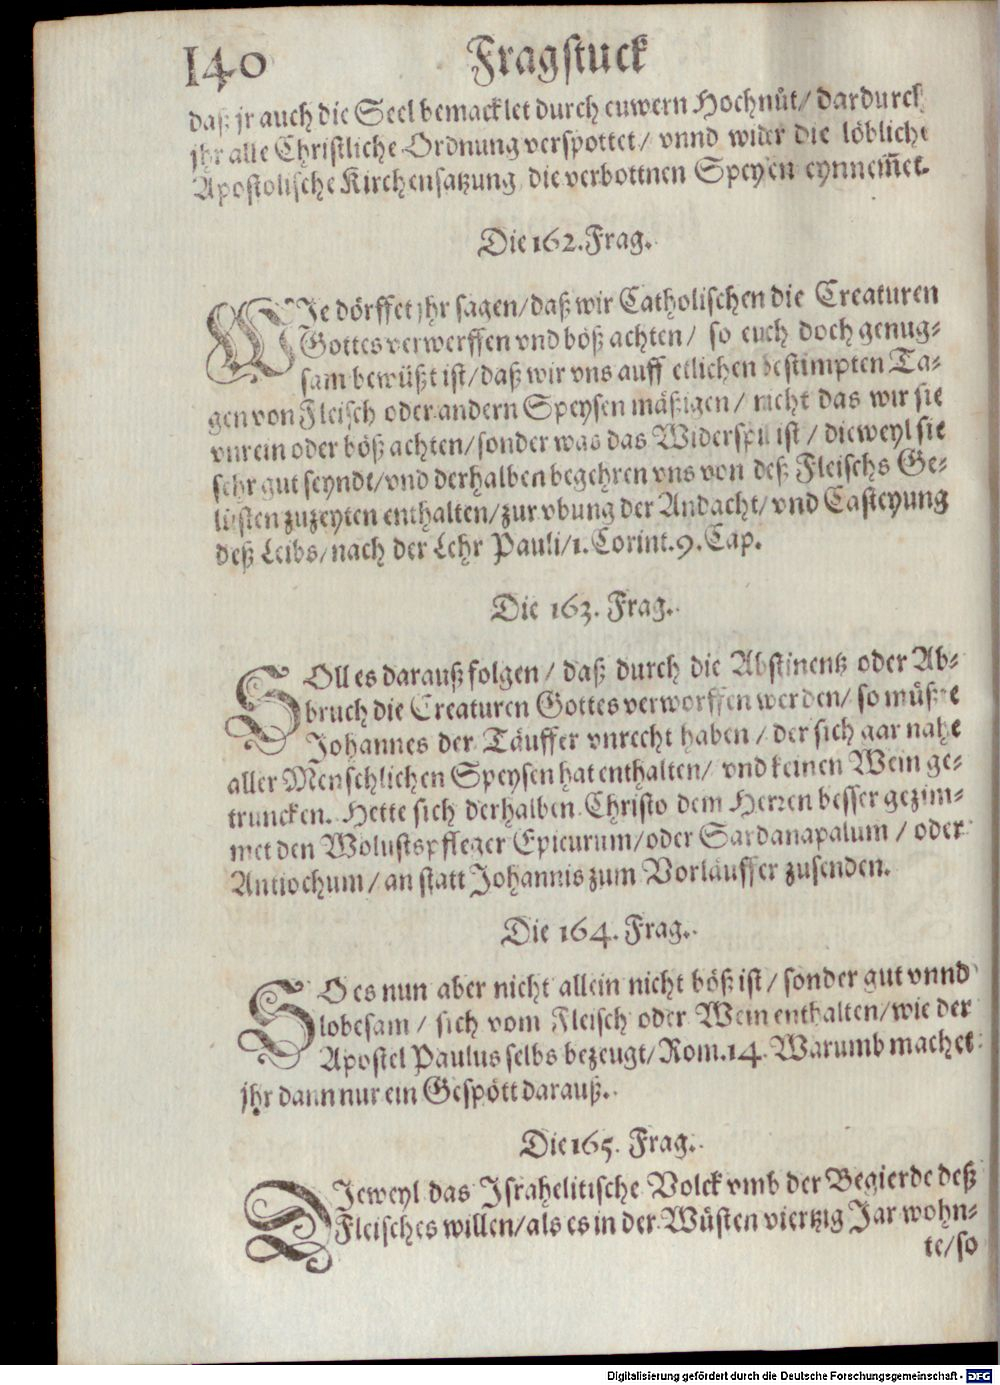 140 Fragstuck
daß jr auch die Seel bemacklet durch euwern Hochmůt/ dardurch
jhr alle Christliche Ordnung verspottet/ vnnd wider die löbliche
Apostolische Kirchensatzung die verbottnen Speysen eynnem̃et.
Die 162. Frag.
WIe dörffet jhr sagen/ daß wir Catholischen die Creaturen
Gottes verwerffen vnd böß achten/ so euch doch genug-
sam bewüßt ist/ daß wir vns auff etlichen bestimpten Ta-
gen von Fleisch oder andern Speysen mäßigen/ nicht das wir sie
vnrein oder böß achten/ sonder was das Widerspil ist/ dieweyl sie
sehr gut seyndt/ vnd derhalben begehren vns von deß Fleischs Ge-
lüsten zuzeyten enthalten/ zur vbung der Andacht/ vnd Casteyung
deß Leibs/ nach der Lehr Pauli/ 1. Corint. 9. Cap.
Die 163. Frag.
SOll es darauß folgen/ daß durch die Abstinentz oder Ab-
bruch die Creaturen Gottes verworffen werden/ so müßte
Johannes der Täuffer vnrecht haben/ der sich gar nahe
aller Menschlichen Speysen hat enthalten/ vnd keinen Wein ge-
truncken. Hette sich derhalben Christo dem Herren besser gezim-
met den Wolustspfleger Epicurum/ oder Sardanapalum/ oder
Antiochum/ an statt Johannis zum Vorläuffer zusenden.
Die 164. Frag.
SO es nun aber nicht allein nicht böß ist/ sonder gut vnnd
lobesam/ sich vom Fleisch oder Wein enthalten/ wie der
Apostel Paulus selbs bezeugt/ Rom. 14. Warumb machet
jhr dann nur ein Gespött darauß.
Die 165. Frag.
DIeweyl das Israhelitische Volck vmb der Begierde deß
Fleisches willen/ als es in der Wüsten viertzig Jar wohn-
te/ so
Digitalisierung gefördert durch die Deutsche Forschungsgemeinschaft - DFG